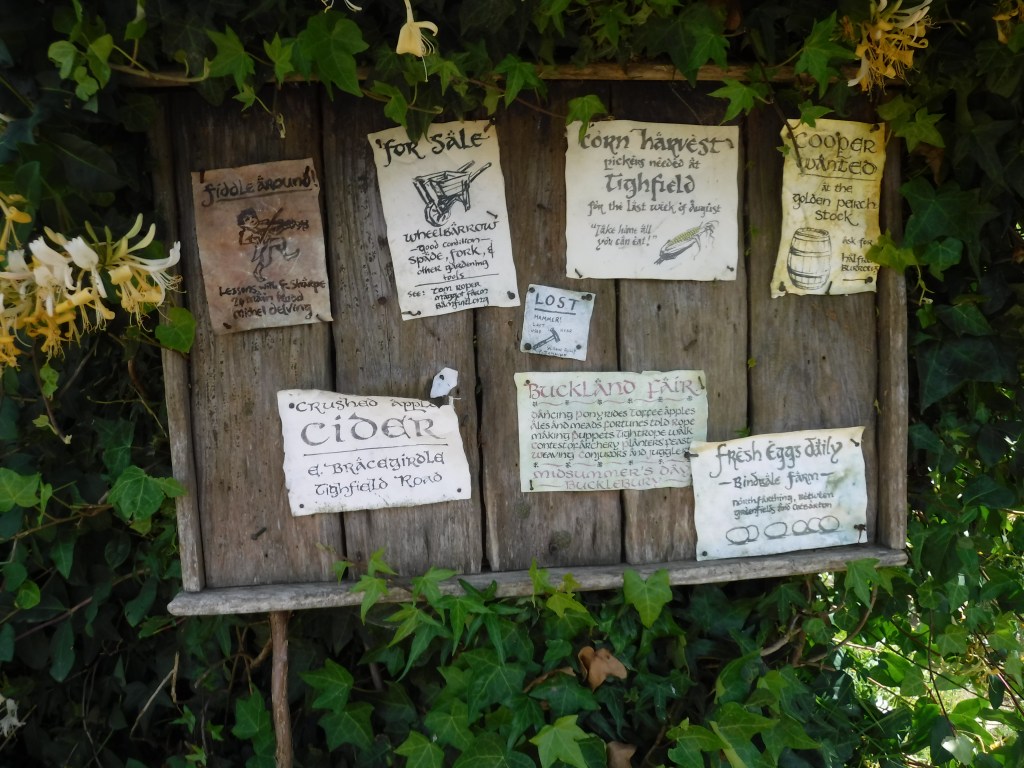 Fiddle Around!
Lessons with F. Sharpe
Michel Delving
For Sale
Wheelbarrow
-Good Condition-
Spade, Fork, &
other gardening
tools
See: Tom Roper
Corn Harvest
Pickers needed at
Tighfield
for the last week of August
"Take home all
you can eat!"
Cooper
Wanted
at the
Golden Perch
Stock
Ask for
LOST
HAMMER!
Crushed Apple
Cider
E. Bracegirdle
Tighfield Road
Buckland Fair
Dancing Pony Rides Toffee Apples
Ales and Meads Fortunes Told Rope
Making Puppets Tightrope Walk
Contest of Archery Planters Feast
Weaving Conjurors and Juggler
Midsummer's Day
Bucklebury
Fresh Eggs daily
-Bindbale Farm-
Northfarthing, Between